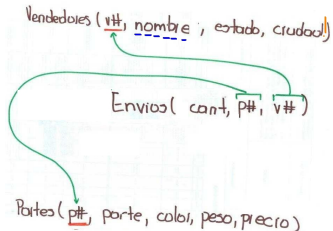 Vendedores (v#, nombre, estado, ciudad)
Envios( cant, p#, v#)
Partes (p#, parte, color, peso, precio)